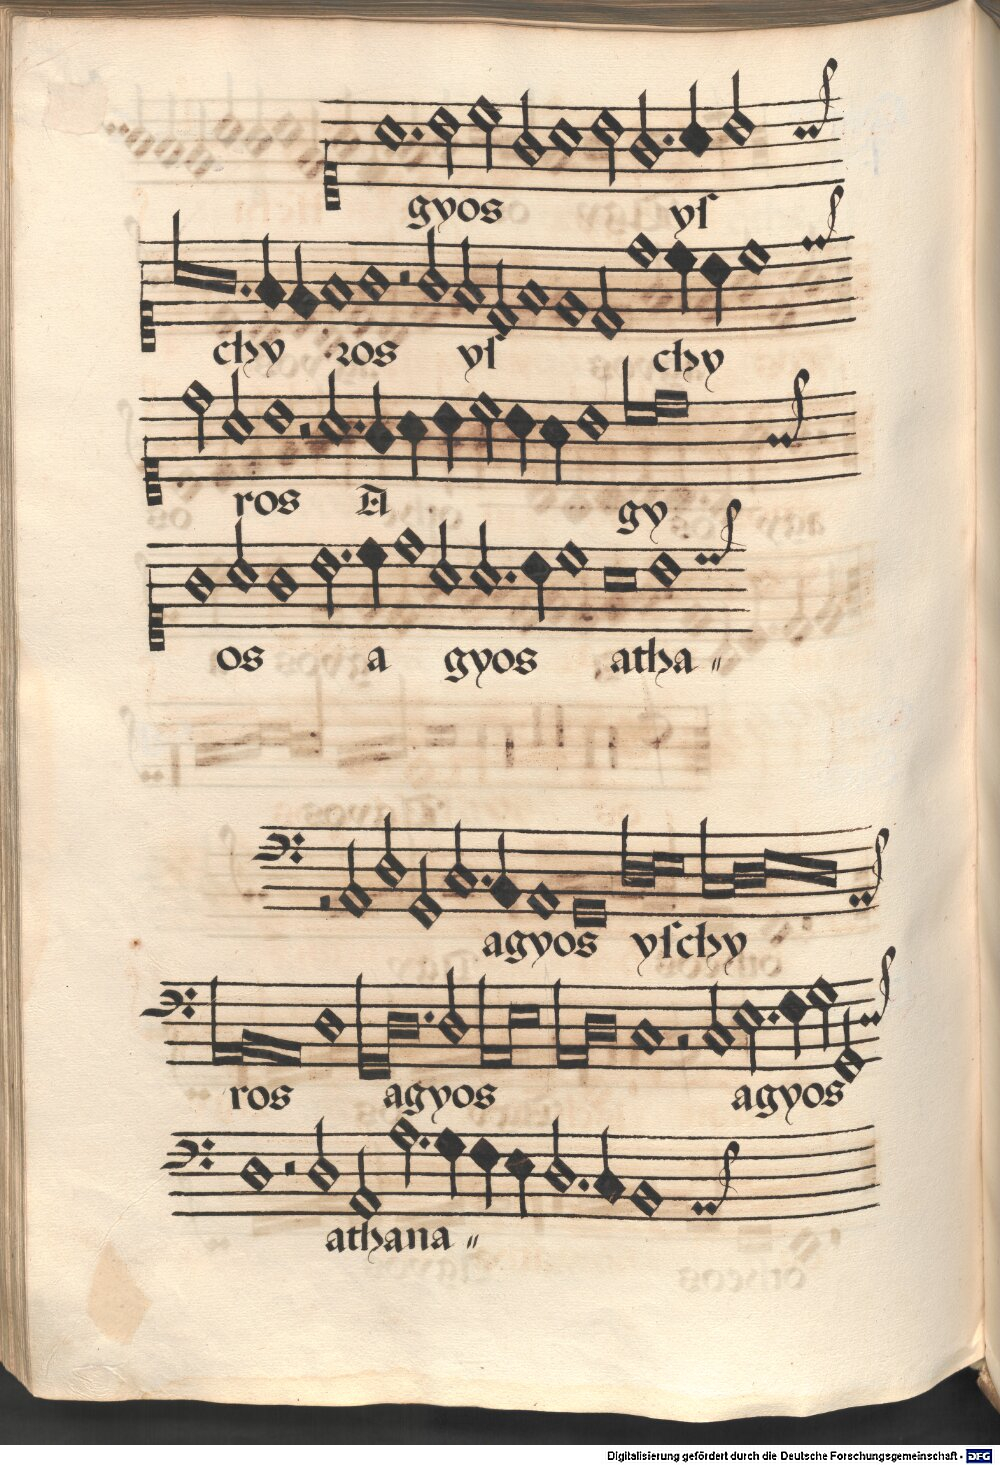 gyos yſ
chy ros yſ chy
ros A gy
os a gyos atha〃
agyos yſchy
ros agyos agyos
athana〃
Digitalisierung gefördert durch die Deutsche Forschungsgemeinschaft - DFG